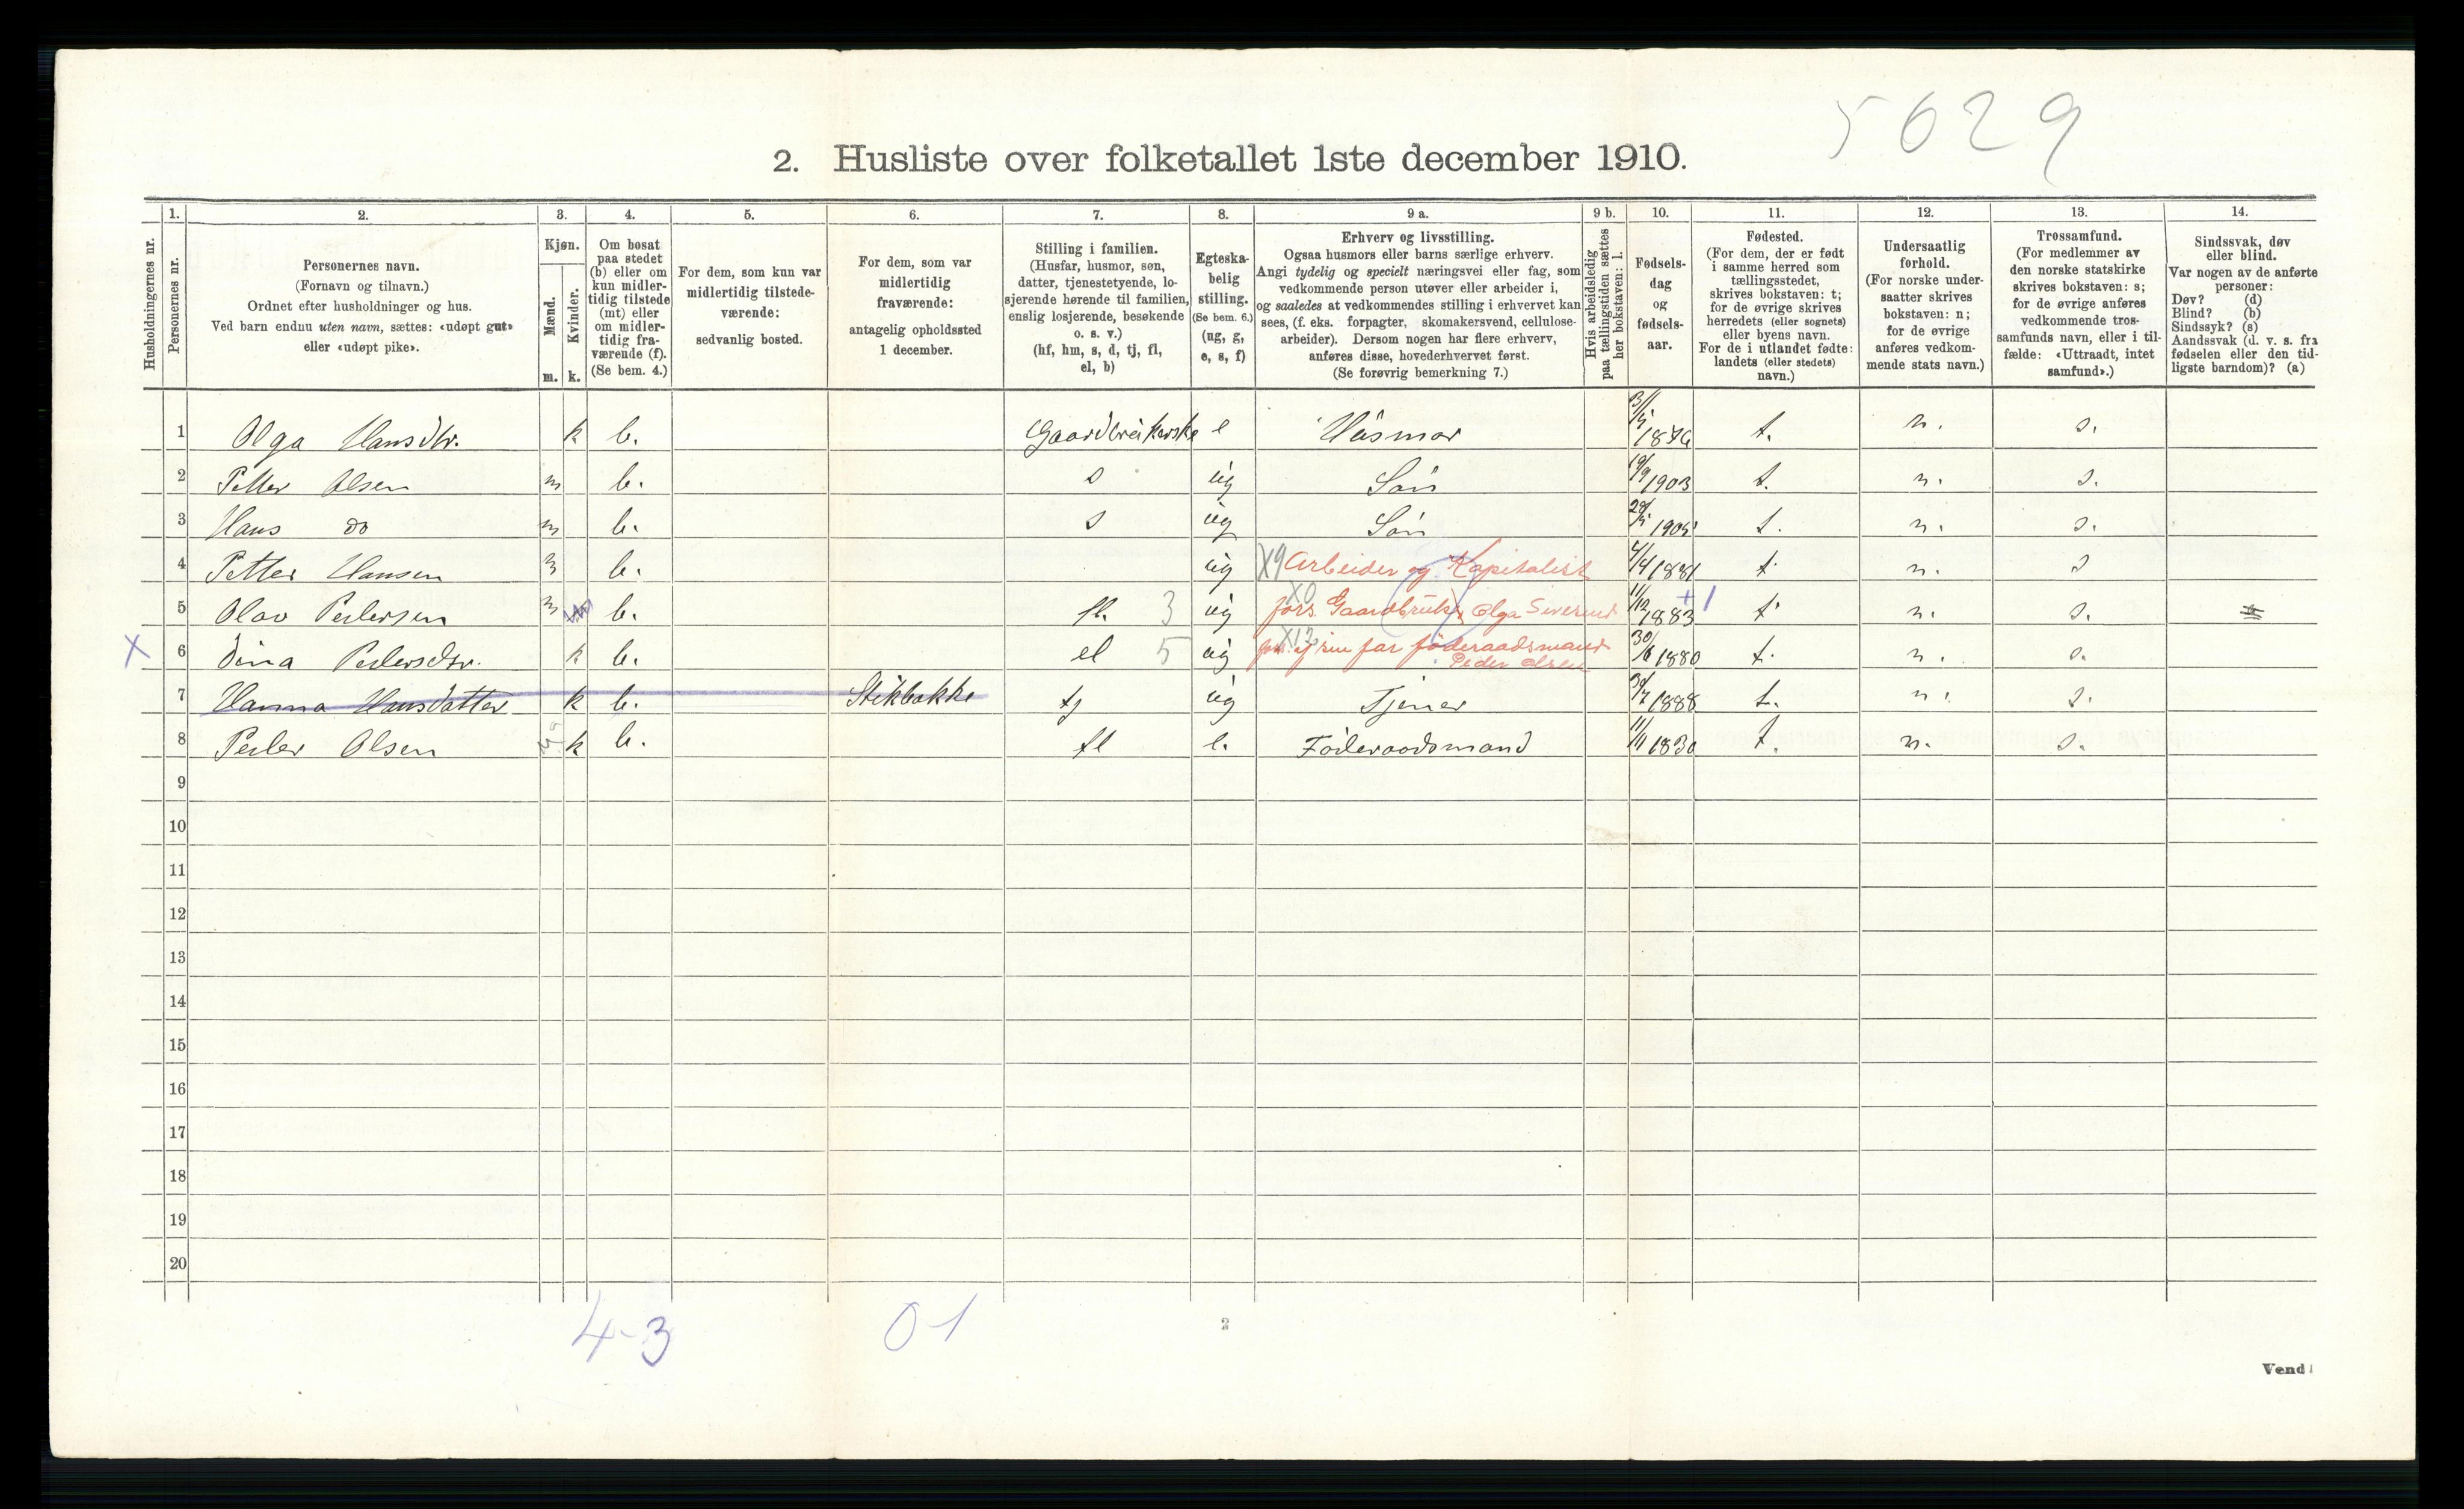 5629
2. Husliste over folketallet 1ste december 1910.
Husholdningernes nr.
1.
Personernes nr.
2.
Personernes navn.
(Fornavn og tilnavn.)
Ordnet efter husholdninger og hus.
Ved barn endnu uten navn, sættes: «udøpt gut»
eller «udøpt pike».
3.
Kjøn.
Mænd.
Kvinder.
m. k.
4.
Om bosat
paa stedet
(b) eller om
kun midler-
tidig tilstede
(mt) eller
om midler-
tidig fra-
værende (f).
(Se bem. 4.)
5.
For dem, som kun var
midlertidig tilstede-
værende:
sedvanlig bosted.
6.
For dem, som var
midlertidig
fraværende:
antagelig opholdssted
1 december.
7.
Stilling i familien.
(Husfar, husmor, søn,
datter, tjenestetyende, lo-
sjerende hørende til familien,
enslig losjerende, besøkende
o. s. v.)
(hf, hm, s, d, tj, fl,
el, b)
8.
Egteska-
belig
stilling.
(Se bem. 6.)
(ug, g,
e, s, f)
9 a.
Erhverv og livsstilling.
Ogsaa husmors eller barns særlige erhverv.
Angi tydelig og specielt næringsvei eller fag, som
vedkommende person utøver eller arbeider i,
og saaledes at vedkommendes stilling i erhvervet kan
sees, (f. eks. forpagter, skomakersvend, cellulose-
arbeider). Dersom nogen har flere erhverv,
anføres disse, hovederhvervet først.
(Se forøvrig bemerkning 7.)
9 b.
Hvis arbeidsledig
paa tællingstiden sættes
her bokstaven: l.
10.
Fødsels-
dag
og
fødsels-
aar.
11.
Fødested.
(For dem, der er født
i samme herred som
tællingsstedet,
skrives bokstaven: t;
for de øvrige skrives
herredets (eller sognets)
eller byens navn.
For de i utlandet fødte:
landets (eller stedets)
navn.)
12.
Undersaatlig
forhold.
(For norske under-
saatter skrives
bokstaven: n;
for de øvrige
anføres vedkom-
mende stats navn.)
13.
Trossamfund.
(For medlemmer av
den norske statskirke
skrives bokstaven: s;
for de øvrige anføres
vedkommende tros-
samfunds navn, eller i til-
fælde: «Uttraadt, intet
samfund».)
14.
Sindssvak, døv
eller blind.
Var nogen av de anførte
personer:
Døv? (d)
Blind? (b)
Sindssyk? (s)
Aandssvak (d. v. s. fra
fødselen eller den tid-
ligste barndom)? (a)
1 Olga Hansdtr. k b. Gaardbrukerske e Husmor 1876 t. n. s.
2 Petter Olsen m b. s ug Søn 19/9 1903 t. n. s.
3 Hans do m b. s ug Søn 1905 t. n. s.
4 Petter Hansen m b. ug X9 Arbeider og Kapitalist 4/4 1881 t n. s
5 Olav Pedersen m b. fl. 3 ug X0 fors. Gaardbruk Olga 11/12 1883 +1 t n. s.
X 6 Dina Pedersdtr. k b. el 5 ug X12 av sin far føderaadsmand Peder Olsen 30/6 1880 t. n. s.
7 Hanna Hansdatter k b. Stikbakke tj ug Tjener 30/7 1888 t. n. s.
8 Peder Olsen k b. fl e. Føderaadsmand 11/11 1830 t. n. s.
9
10
11
12
13
14
15
16
17
18
19
20
4-3 0-1
2
Vend!